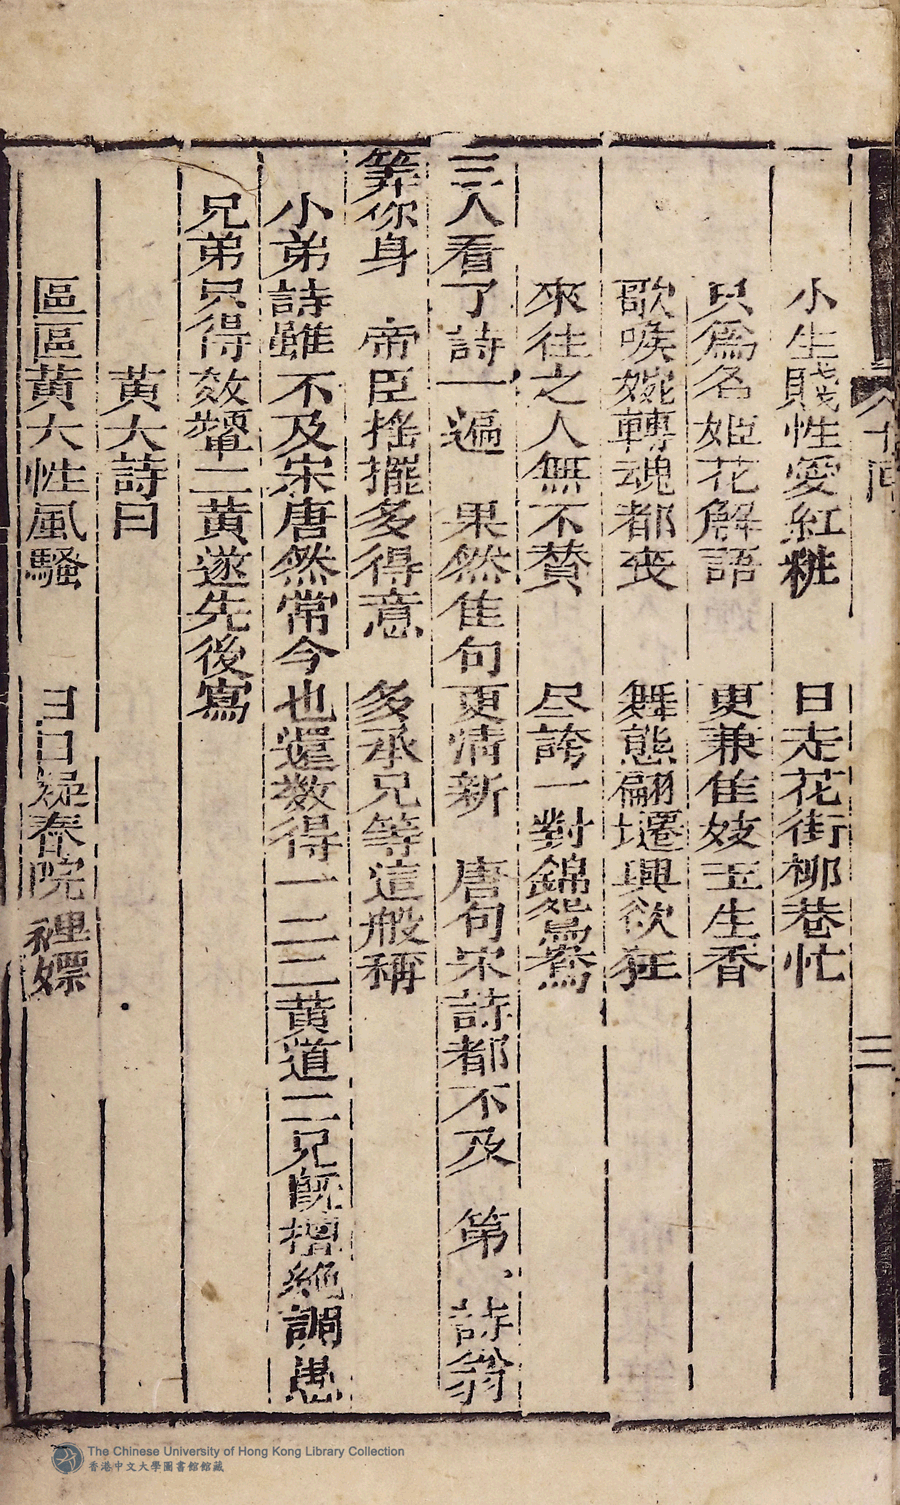 小生賤性愛紅粧　日走花街柳巷忙
只爲名姬花解語　更兼隹妓玉生香
歌喉婉轉魂都丧　舞態翩壥興欲狂
來往之人無不賛　尽誇一對錦鴛鴦
三人看了詩一遍　果然隹句更清新　唐句宋詩都不及　第一詩翁
筭你身　帝臣搖擺多得意　多承兄等這般稱
小弟詩雖不及宋唐然常今也還数得一二三黄道二兄旣擅絶調愚
兄弟只得效顰二黄遂先後寫
黄大詩曰
區區黄大性風騷　日口疑春院裡嫖
十回
三
The Chinese University of Hong Kong Library Collection
香港中文大學圖書館館藏